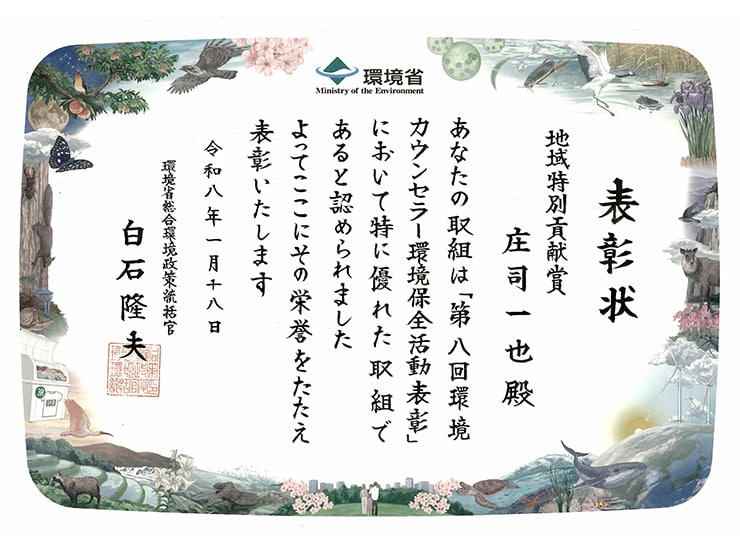 環境省
Ministry of the Environment
表彰状
地域特別貢献賞
庄司一也殿
あなたの取組は「第八回環境
カウンセラー環境保全活動表彰」
において特に優れた取組で
あると認められました
よってここにその栄誉をたたえ
表彰いたします
令和八年一月十八日
環境省総合環境政策統括官
白石隆夫